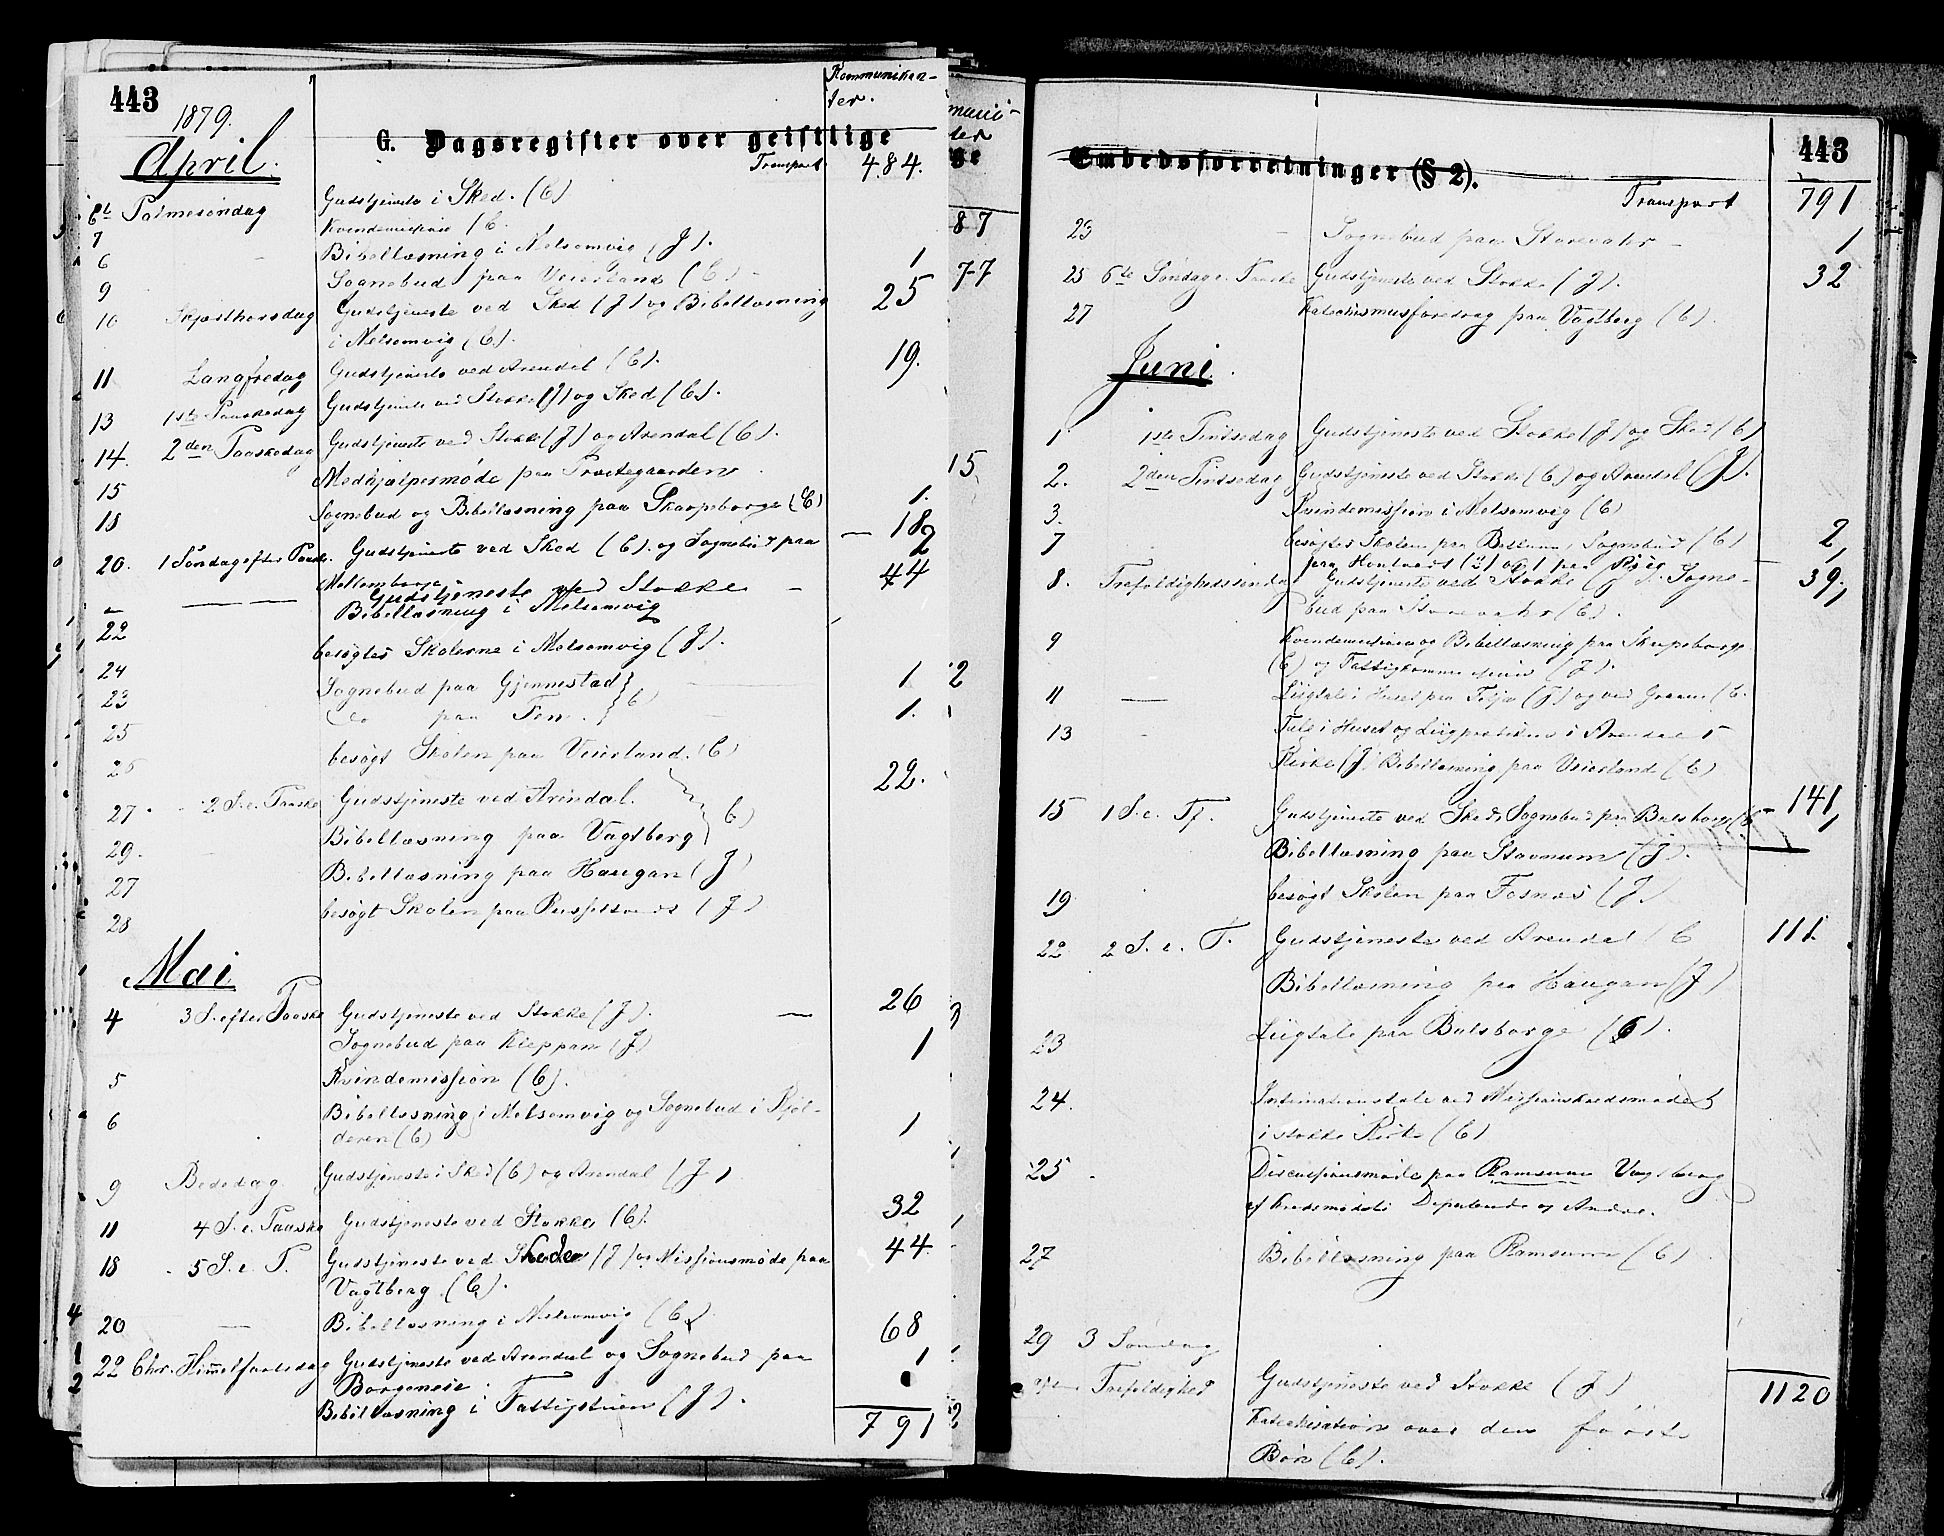 443
1879.
April.
G. Dagsregister over geistlige
Kommunikan-
ter.
Transport 484.
6te Palmesøndag Gudstjeneste i Sked. (C)
7 Kvindemission (C.
6 Bibellæsning i Melsomvig (J).
9 Sognebud paa Veierland (C). 1
10 Skjærthorsdag Gudstjeneste ved Sked (J) og Bibellæsning 25
i Melsomvig (C).
11 Langfredag Gudstjeneste ved Arendal (C). 19.
13 1ste Paaskedag Gudstjeneste ved Stokke (J) og Sked (C).
14. 2den Paaskedag Gudstjeneste ved Stokke (J) og Arendal (C).
15 Medhjælpermøde paa Præstegaarden
18 Sognebud og Bibellæsning paa Skarpeborge (C) 1.
20. 1 Søndag efter Paaske. Gudstjeneste ved Sked (C). og Sognebud paa 18
Mellemborge 2
Gudstjeneste ved Stokke 44
22 Bibellæsning i Melsomvig
besøgtes Skolerne i Melsomvig (J).
24 Sognebud paa Gjennestad } 1
23 do paa Fen. } C) 1.
25 besøgt Skolen paa Veierland. (C)
27 2 S. e. Paaske Gudstjeneste ved Arendal. 22.
29. Bibellæsning paa Vagtberg } C)
27 Bibellæsning paa Haugan (J)
28 besøgt Skolen paa (J)
Mai
4 3 S. efter Paaske Gudstjeneste ved Stokke (J). 26
Sognebud paa Kleppan (J) 1
5 Kvindemission (C).
6 Bibellæsning i Melsomvig og Sognebud i Kjøl- 1
deren (C)
9 Bededag Gudstjeneste i Sked (C) og Arendal (J)
11 4 S. e. Paaske Gudstjeneste ved Stokke (C). 32
18 5 S. e. P. Gudstjeneste ved (J) og Missionsmøde paa 44
Vagtberg (C).
20 Bibellæsning i Melsomvig (C)
22 Chr. Himmelfartsdag Gudstjeneste ved Arendal og Sognebud paa 68
Borgeneie. 1
Bibellæsning i Fattigstuen (J).
791
Embedsforretninger (§ 2).
443
Transport 791
23 Sognebud paa Storevahr 1
25 6te Søndag e. Paaske Gudstjeneste ved Stokke (J). 32
27 Katechismusforedrag paa Vagtberg (C).
Juni
1 1ste Pintsedag Gudstjeneste ved Stokke (J) og Sked (C)
2. 2den Pintsedag Gudstjeneste ved Stokke (C) og Arendal (J).
3. Kvindemission i Melsomvig (C)
7 besøgtes Skolen paa Sognebud (C) 2
paa og 1 paa
8. Trefoldighedssøndag Gudstjeneste ved Stokke (J). Sogne- 39
bud paa Storevahr (C).
9 Kvindemission og Bibellæsning paa Skarpeborge
(C) og Fattigkommission (J).
11 Liigtale i Huset paa (J) og ved Graven (C.
13 Tale i Huset og Liigprædiken i Arendal
Kirke (J) Bibellæsning paa Veierland (C)
15 1 S. e. Tf. Gudstjeneste ved Sked, Sognebud paa Bulsborge (C) 141
Bibellæsning paa Stavnum (J). 1
19 besøgt Skolen paa Fosnæs (J)
22 2 S. e. T. Gudstjeneste ved Arendal (C 111
Bibellæsning paa Haugan (J)
23 Liigtale paa Bulsborge (C).
24. ved Missionskredsmødet
i Stokke Kirke (C)
25 Discussionsmøde paa Ramsum Vagtberg
af Kredsmødets Deputerede og Andre.
27 Bibellæsning paa Ramsum (C)
29 3 Søndag
Trefoldighed Gudstjeneste ved Stokke (J)
Katechisation over den
Børn (C).
1120